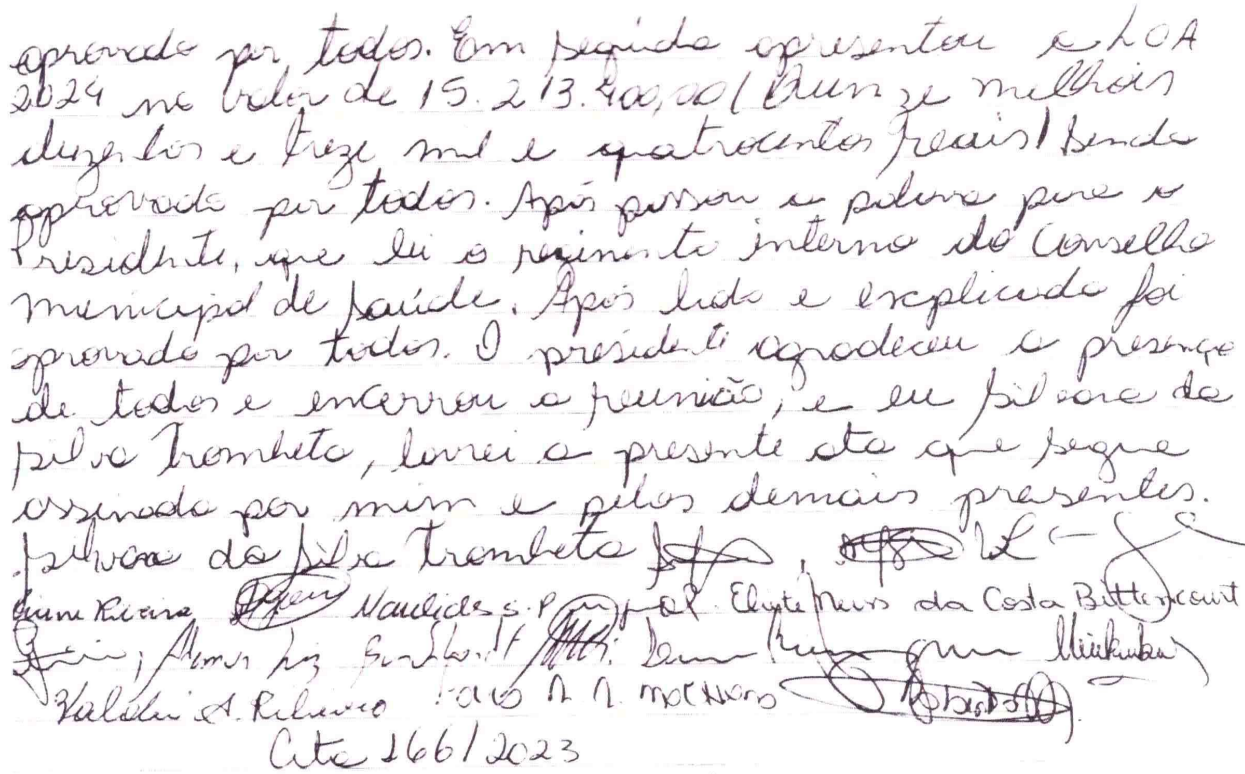 aprovado por todos. Em seguida apresentou a LOA
2024 no valor de 15.213.400,00 (Quinze milhois
duzentos e treze mil e quatrocentos reais) sendo
aprovado por todos. Após passou a palavra para o
Presidente, que leu o regimento interno do Conselho
municipal de saúde. Após lido e explicado foi
aprovado por todos. O presidente agradeceu a presença
de todos e encerrou a reunião, e eu Silvana da
Silva Trombeta, lavrei a presente ata que segue
assinada por mim e pelos demais presentes.
Silvana da Silva Trombeta
da Costa Bittencourt
Luz
A. Ribeiro
Ata 166/2023